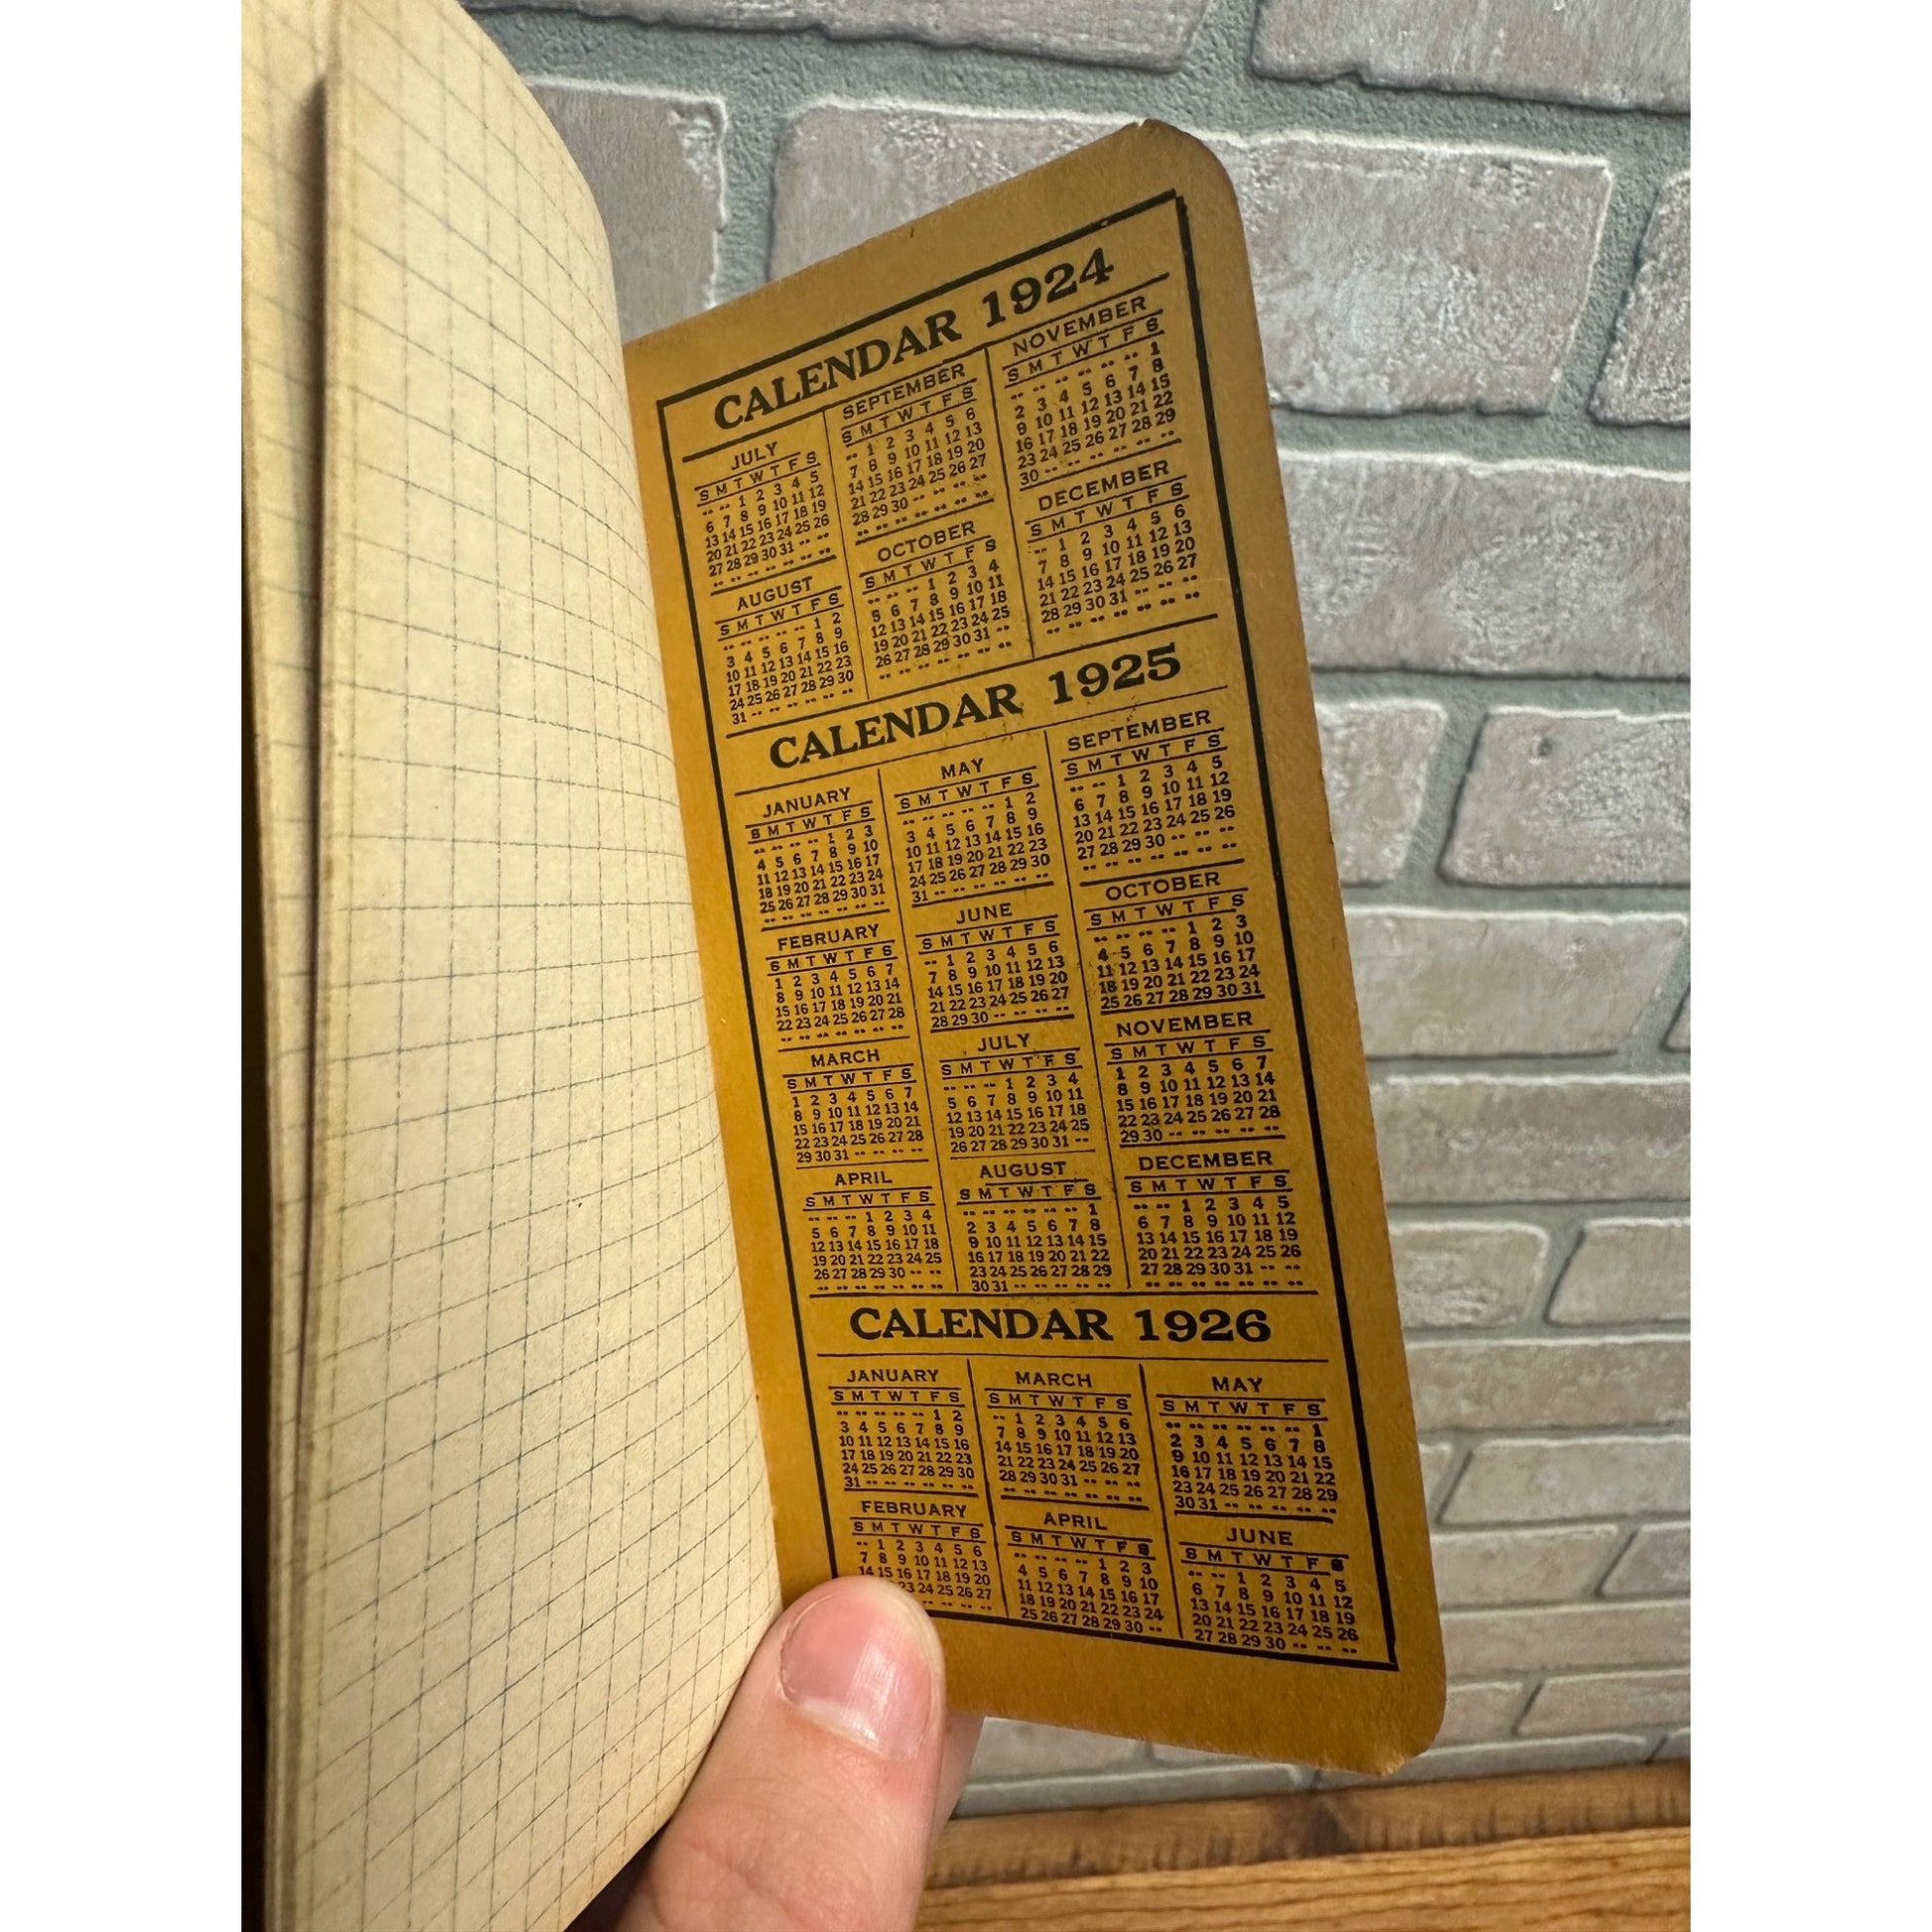 CALENDAR 1924
JULY
S M T W T F S
.. .. 1 2 3 4 5
6 7 8 9 10 11 12
13 14 15 16 17 18 19
20 21 22 23 24 25 26
27 28 29 30 31 .. ..
.. .. .. .. .. .. ..
AUGUST
S M T W T F S
.. .. .. .. .. 1 2
3 4 5 6 7 8 9
10 11 12 13 14 15 16
17 18 19 20 21 22 23
24 25 26 27 28 29 30
31 .. .. .. .. .. ..
SEPTEMBER
S M T W T F S
.. 1 2 3 4 5 6
7 8 9 10 11 12 13
14 15 16 17 18 19 20
21 22 23 24 25 26 27
28 29 30 .. .. .. ..
.. .. .. .. .. .. ..
OCTOBER
S M T W T F S
.. .. .. 1 2 3 4
5 6 7 8 9 10 11
12 13 14 15 16 17 18
19 20 21 22 23 24 25
26 27 28 29 30 31 ..
.. .. .. .. .. .. ..
NOVEMBER
S M T W T F S
.. .. .. .. .. .. 1
2 3 4 5 6 7 8
9 10 11 12 13 14 15
16 17 18 19 20 21 22
23 24 25 26 27 28 29
30 .. .. .. .. .. ..
DECEMBER
S M T W T F S
.. 1 2 3 4 5 6
7 8 9 10 11 12 13
14 15 16 17 18 19 20
21 22 23 24 25 26 27
28 29 30 31 .. .. ..
.. .. .. .. .. .. ..
CALENDAR 1925
JANUARY
S M T W T F S
.. .. .. .. 1 2 3
4 5 6 7 8 9 10
11 12 13 14 15 16 17
18 19 20 21 22 23 24
25 26 27 28 29 30 31
.. .. .. .. .. .. ..
FEBRUARY
S M T W T F S
1 2 3 4 5 6 7
8 9 10 11 12 13 14
15 16 17 18 19 20 21
22 23 24 25 26 27 28
.. .. .. .. .. .. ..
MARCH
S M T W T F S
1 2 3 4 5 6 7
8 9 10 11 12 13 14
15 16 17 18 19 20 21
22 23 24 25 26 27 28
29 30 31 .. .. .. ..
APRIL
S M T W T F S
.. .. .. 1 2 3 4
5 6 7 8 9 10 11
12 13 14 15 16 17 18
19 20 21 22 23 24 25
26 27 28 29 30 .. ..
.. .. .. .. .. .. ..
MAY
S M T W T F S
.. .. .. .. .. 1 2
3 4 5 6 7 8 9
10 11 12 13 14 15 16
17 18 19 20 21 22 23
24 25 26 27 28 29 30
31 .. .. .. .. .. ..
JUNE
S M T W T F S
.. 1 2 3 4 5 6
7 8 9 10 11 12 13
14 15 16 17 18 19 20
21 22 23 24 25 26 27
28 29 30 .. .. .. ..
JULY
S M T W T F S
.. .. .. 1 2 3 4
5 6 7 8 9 10 11
12 13 14 15 16 17 18
19 20 21 22 23 24 25
26 27 28 29 30 31 ..
AUGUST
S M T W T F S
.. .. .. .. .. .. 1
2 3 4 5 6 7 8
9 10 11 12 13 14 15
16 17 18 19 20 21 22
23 24 25 26 27 28 29
30 31 .. .. .. .. ..
SEPTEMBER
S M T W T F S
.. .. 1 2 3 4 5
6 7 8 9 10 11 12
13 14 15 16 17 18 19
20 21 22 23 24 25 26
27 28 29 30 .. .. ..
.. .. .. .. .. .. ..
OCTOBER
S M T W T F S
.. .. .. .. 1 2 3
4 5 6 7 8 9 10
11 12 13 14 15 16 17
18 19 20 21 22 23 24
25 26 27 28 29 30 31
NOVEMBER
S M T W T F S
1 2 3 4 5 6 7
8 9 10 11 12 13 14
15 16 17 18 19 20 21
22 23 24 25 26 27 28
29 30 .. .. .. .. ..
DECEMBER
S M T W T F S
.. .. 1 2 3 4 5
6 7 8 9 10 11 12
13 14 15 16 17 18 19
20 21 22 23 24 25 26
27 28 29 30 31 .. ..
.. .. .. .. .. .. ..
CALENDAR 1926
JANUARY
S M T W T F S
.. .. .. .. .. 1 2
3 4 5 6 7 8 9
10 11 12 13 14 15 16
17 18 19 20 21 22 23
24 25 26 27 28 29 30
31 .. .. .. .. .. ..
FEBRUARY
S M T W T F S
.. 1 2 3 4 5 6
7 8 9 10 11 12 13
14 15 16 17 18 19 20
23 24 25 26 27
.. .. ..
MARCH
S M T W T F S
.. 1 2 3 4 5 6
7 8 9 10 11 12 13
14 15 16 17 18 19 20
21 22 23 24 25 26 27
28 29 30 31 .. .. ..
.. .. .. .. .. .. ..
APRIL
S M T W T F S
.. .. .. .. 1 2 3
4 5 6 7 8 9 10
11 12 13 14 15 16 17
18 19 20 21 22 23 24
25 26 27 28 29 30 ..
MAY
S M T W T F S
.. .. .. .. .. .. 1
2 3 4 5 6 7 8
9 10 11 12 13 14 15
16 17 18 19 20 21 22
23 24 25 26 27 28 29
30 31 .. .. .. .. ..
JUNE
S M T W T F S
.. .. 1 2 3 4 5
6 7 8 9 10 11 12
13 14 15 16 17 18 19
20 21 22 23 24 25 26
27 28 29 30 .. .. ..